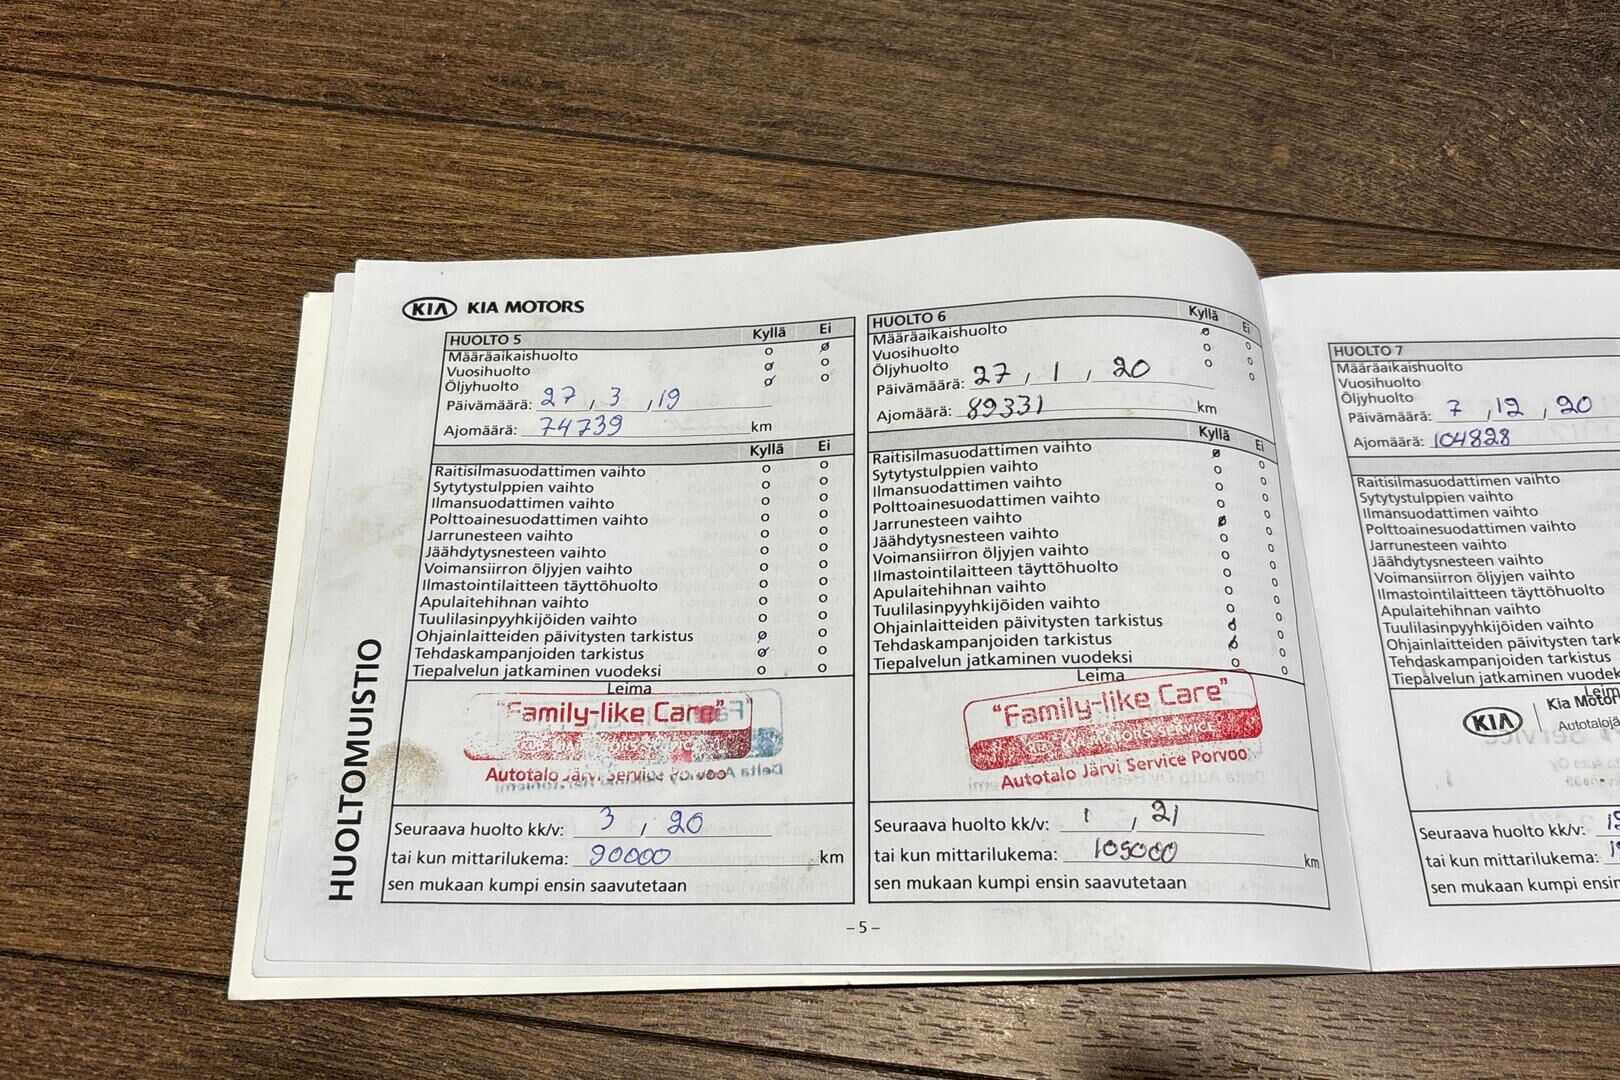 KIA KIA MOTORS
HUOLTOMUISTIO
HUOLTO 5 Kyllä Ei
Määräaikaishuolto
Vuosihuolto
Öljyhuolto
Päivämäärä: 27 , 3 , 19
Ajomäärä: 74739 km
Kyllä Ei
Raitisilmasuodattimen vaihto
Sytytystulppien vaihto
Ilmansuodattimen vaihto
Polttoainesuodattimen vaihto
Jarrunesteen vaihto
Jäähdytysnesteen vaihto
Voimansiirron öljyjen vaihto
Ilmastointilaitteen täyttöhuolto
Apulaitehihnan vaihto
Tuulilasinpyyhkijöiden vaihto
Ohjainlaitteiden päivitysten tarkistus
Tehdaskampanjoiden tarkistus
Tiepalvelun jatkaminen vuodeksi
Leima
"Family-like Care"
KIA MOTORS SERVICE
Autotalo Järvi Service Porvoo
Seuraava huolto kk/v: 3 , 20
tai kun mittarilukema: 90000 km
sen mukaan kumpi ensin saavutetaan
HUOLTO 6 Kyllä Ei
Määräaikaishuolto
Vuosihuolto
Öljyhuolto
Päivämäärä: 27 , 1 , 20
Ajomäärä: 89331 km
Kyllä Ei
Raitisilmasuodattimen vaihto
Sytytystulppien vaihto
Ilmansuodattimen vaihto
Polttoainesuodattimen vaihto
Jarrunesteen vaihto
Jäähdytysnesteen vaihto
Voimansiirron öljyjen vaihto
Ilmastointilaitteen täyttöhuolto
Apulaitehihnan vaihto
Tuulilasinpyyhkijöiden vaihto
Ohjainlaitteiden päivitysten tarkistus
Tehdaskampanjoiden tarkistus
Tiepalvelun jatkaminen vuodeksi
Leima
"Family-like Care"
KIA KIA MOTORS SERVICE
Autotalo Järvi Service Porvoo
Seuraava huolto kk/v: 1 , 21
tai kun mittarilukema: 105000 km
sen mukaan kumpi ensin saavutetaan
– 5 –
HUOLTO 7
Määräaikaishuolto
Vuosihuolto
Öljyhuolto
Päivämäärä: 7 , 12 , 20
Ajomäärä: 104828
Raitisilmasuodattimen vaihto
Sytytystulppien vaihto
Ilmansuodattimen vaihto
Polttoainesuodattimen vaihto
Jarrunesteen vaihto
Jäähdytysnesteen vaihto
Voimansiirron öljyjen vaihto
Ilmastointilaitteen täyttöhuolto
Apulaitehihnan vaihto
Tuulilasinpyyhkijöiden vaihto
Ohjainlaitteiden päivitysten tark
Tehdaskampanjoiden tarkistus
Tiepalvelun jatkaminen vuodek
Leim
KIA Kia Motor
Autotalojä
Seuraava huolto kk/v:
tai kun mittarilukema:
sen mukaan kumpi ensin